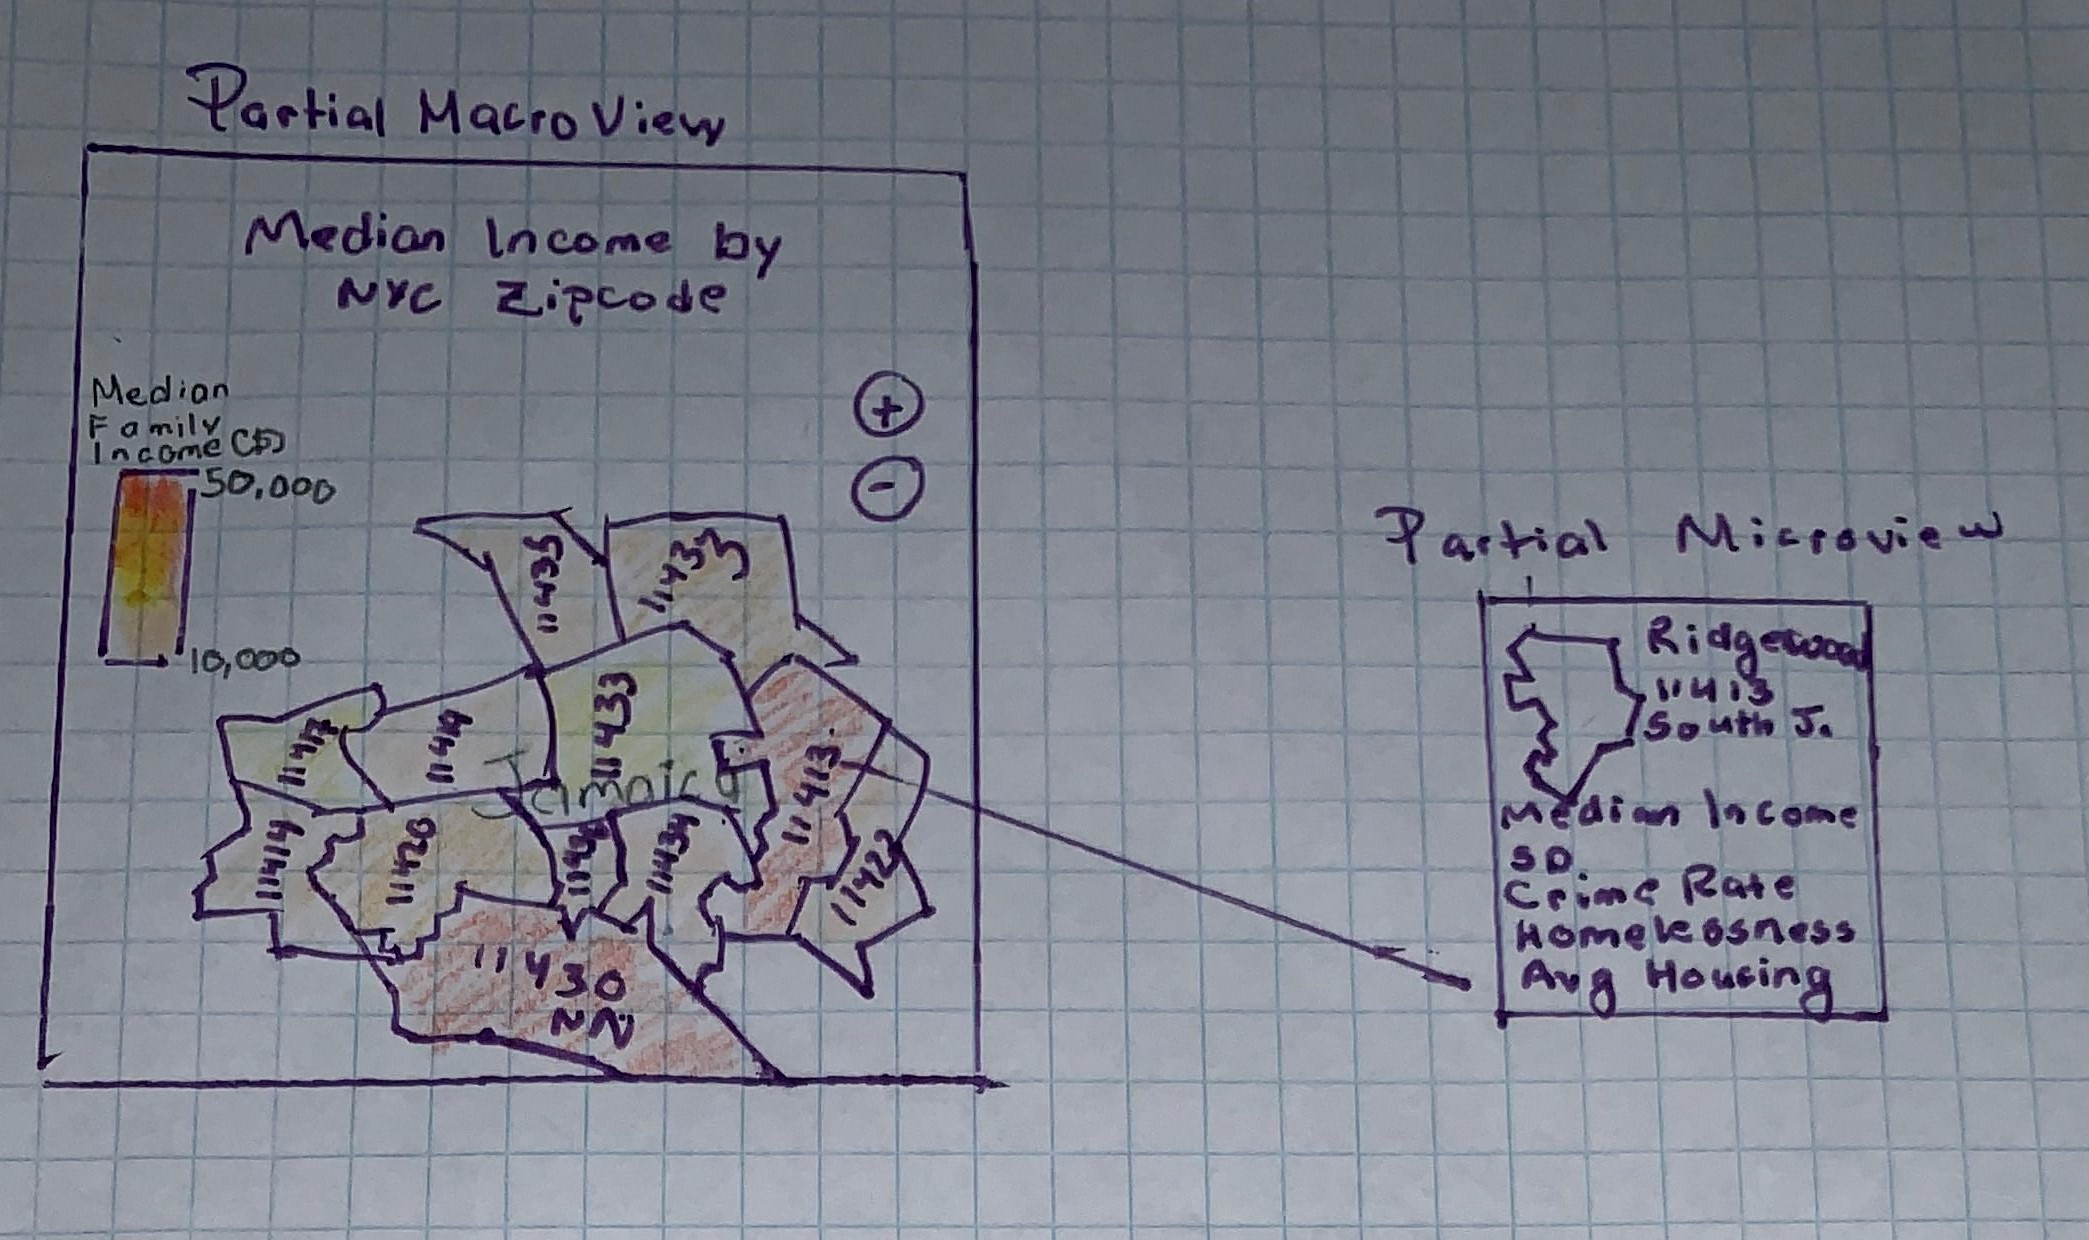 Partial Macro View
Median Income by
NYC Zipcode
Median
Family
Income ($)
50,000
10,000
+
-
11435
11433
11433
11419
Jamaica
11413
11420
11434
11422
11430
Partial Microview
Ridgewood
11413
South J.
Median Income
SD
Crime Rate
Homelessness
Avg Housing